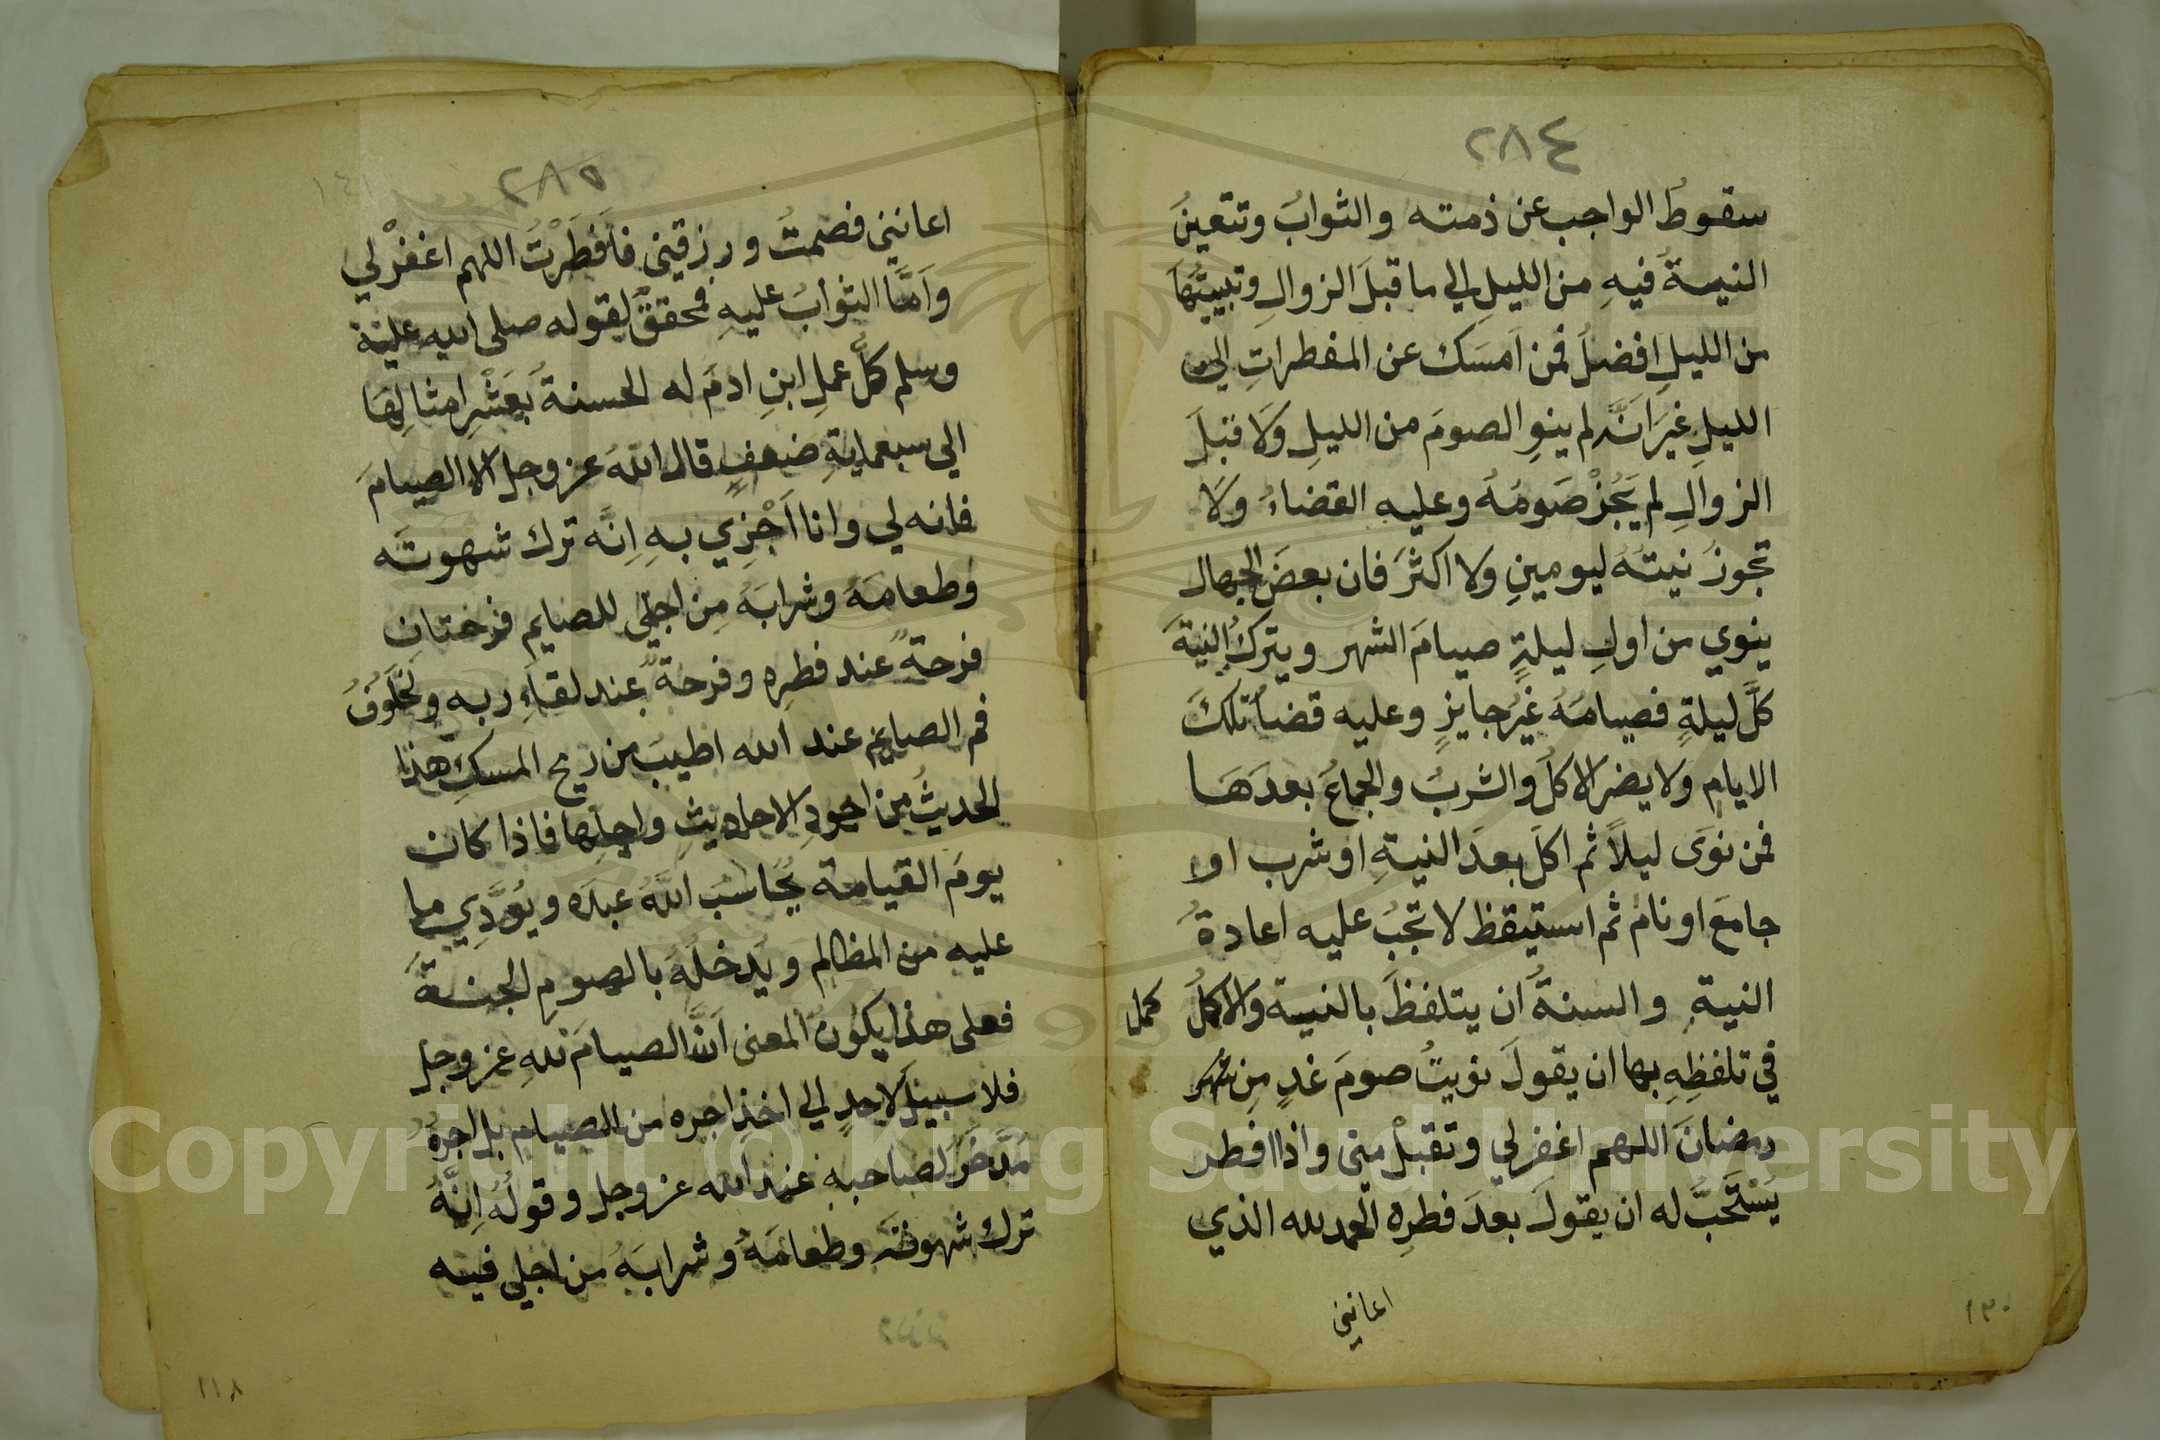 ٢٨٤
سقوطُ الواجب عن ذمته والثوابُ وتتعينُ
النيةُ فيهِ من الليلِ الي ما قبلَ الزوالِ وتبييتُها
من الليلِ افضلُ فمن اَمسَك عن المفطراتِ الي
الليلِ غيرَ اَنَّه لم ينوِ الصومَ من الليلِ وَلَا قبلَ
الزوالِ لم يَجُزْ صَومُهُ وعليه القضاءُ ولَا
تجوزُ نيتُهُ ليومينِ وَلا اكثرَ فان بعضَ الجهال
ينوي من اولِ ليلةٍ صيامَ الشهر ويتركُ النيةَ
كلَّ ليلةٍ فصيامُهُ غيرُ جايزٍ وعليه قضاُ تلكَ
الايام وَلا يضر الاكلُ والشربُ والجماعُ بعدَهَا
فمن نوَى ليلاً ثم اكلَ بعدَ النيةِ او شرب او
جامَع او نام ثم استيقظ لا تجبُ عليه اعادةُ
النيةِ والسنةُ ان يتلفظَ بالنية والاكلُ كمل
في تلفظِهِ بها ان يقولَ نويتُ صومَ غدٍ مِن شهر
رمضانَ اللهم اغفر لي وتقبلْ مني واذا افطر
يُسْتَحَبُّ له ان يقولَ بعدَ فطرِه الحمد لله الذي
اعانني
١٣٠
٢٨٥
١٤١
اعانني فصمتُ ورزقني فاَفطَرْتُ اللهم اغفرْ لي
واَمَّا الثوابُ عليهِ فمحققٌ لقوله صلى الله عليه
وسلم كلُّ عملِ ابنِ ادمَ له الحسنةُ بعَشْرِ امثالِهَا
الي سبعمايةِ ضعفٍ قال اللهُ عز وجل الا الصيامَ
فانه لي وانا اَجْزِي بهِ اِنَّه ترك شهوتَه
وطعامَهُ وشرابَهُ مِن اجلي للصايم فرحتان
فرحةٌ عند فطرِه وفرحةٌ عند لقاءِ ربه ولخَلُوفُ
فم الصايم عند الله اطيبُ من ريح المسكِ هذا
الحديثُ من اجودِ الاحاديثِ واجلِها فاذا كان
يومَ القيامة يُحَاسبُ اللهُ عبدَه ويُوَدِّي ما
عليه من المظالم ويُدخلُهُ بالصومِ الجنةَ
فعلى هذا يكونُ المعنى اَنَّ الصيامَ للهِ عز وجل
فلا سبيلَ لاحدٍ الي اخذِ اجره من الصيام بل اجرُهُ
مُدَّخَرٌ لصاحبه عند الله عز وجل وقولُهُ اِنَّهُ
ترك شهوتَه وطعامَهُ وشرابَهُ من اجلي فيه
١١٨
Copyright © King Saud University